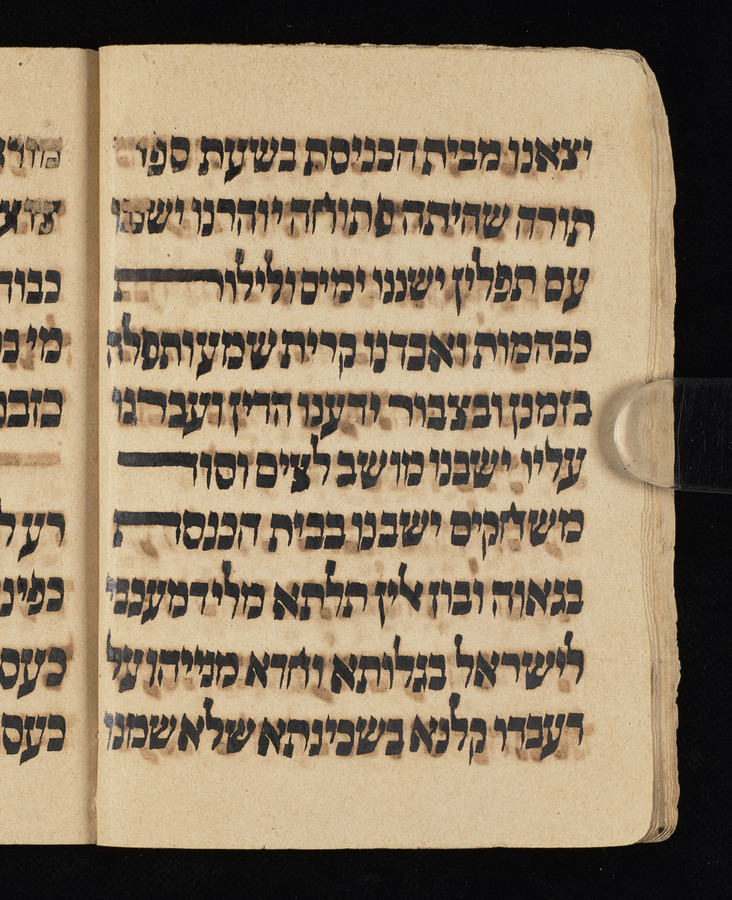 יצאנו מבית הכניסת בשעת ספר
תורה שהיתה פתוחה יוהרנו ישננו
עם תפלין ישננו ימים ולילות
כבהמות ואבדנו קרית שמע ותפלה
בזמנן ובצבור ידענו הדין ועברנו
עליו ישבנו מושב לצים וסוד
משחקים ישבנו בבית הכנסת
בגאוה ובוז אלין תלתא מלי דמעכבי
לישראל בגלותא וחדא מנייהו על
דעבדו קלנא בשכינתא שלא שמנו
כבוד
רעל
כעס
כעס